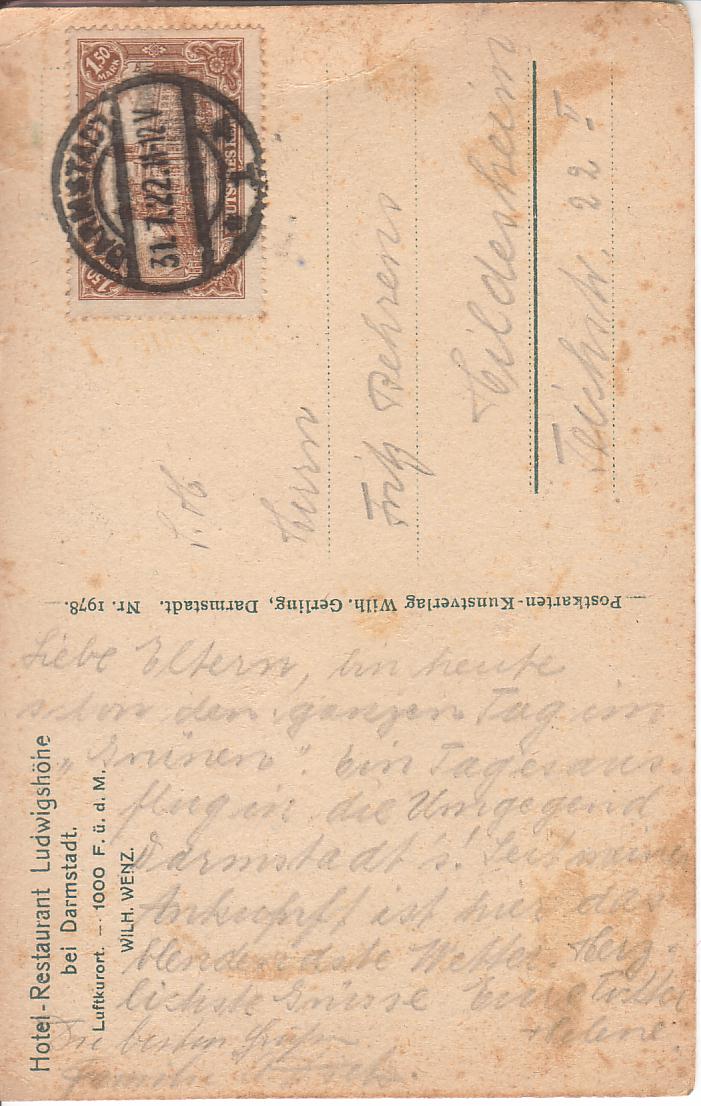 1.50 MARK
DARMSTADT
31.7.22.11-12V
1
1,50
S. H
Herrn
Fritz Behrens
Hildesheim
Teichstr. 22 I
Postkarten-Kunstverlag Wilh. Gerling, Darmstadt. Nr. 1978.
Hotel-Restaurant Ludwigshöhe
bei Darmstadt.
Luftkurort. – 1000 F. ü. d. M.
WILH. WENZ.
Liebe Eltern, bin heute
schon den ganzen Tag im
„Grünen". Ein Tagesaus-
flug in die Umgegend
Darmstadt's! Seit meiner
Ankunft ist hier das
blendendste Wetter. Herz-
lichste Grüsse Eure Tochter
Helene.
Die besten Grüße
Familie